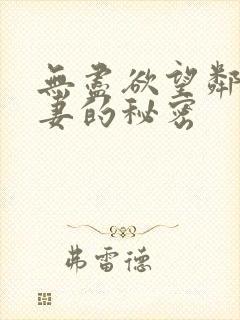 無盡欲望鄰
妻的秘密
弗雷德